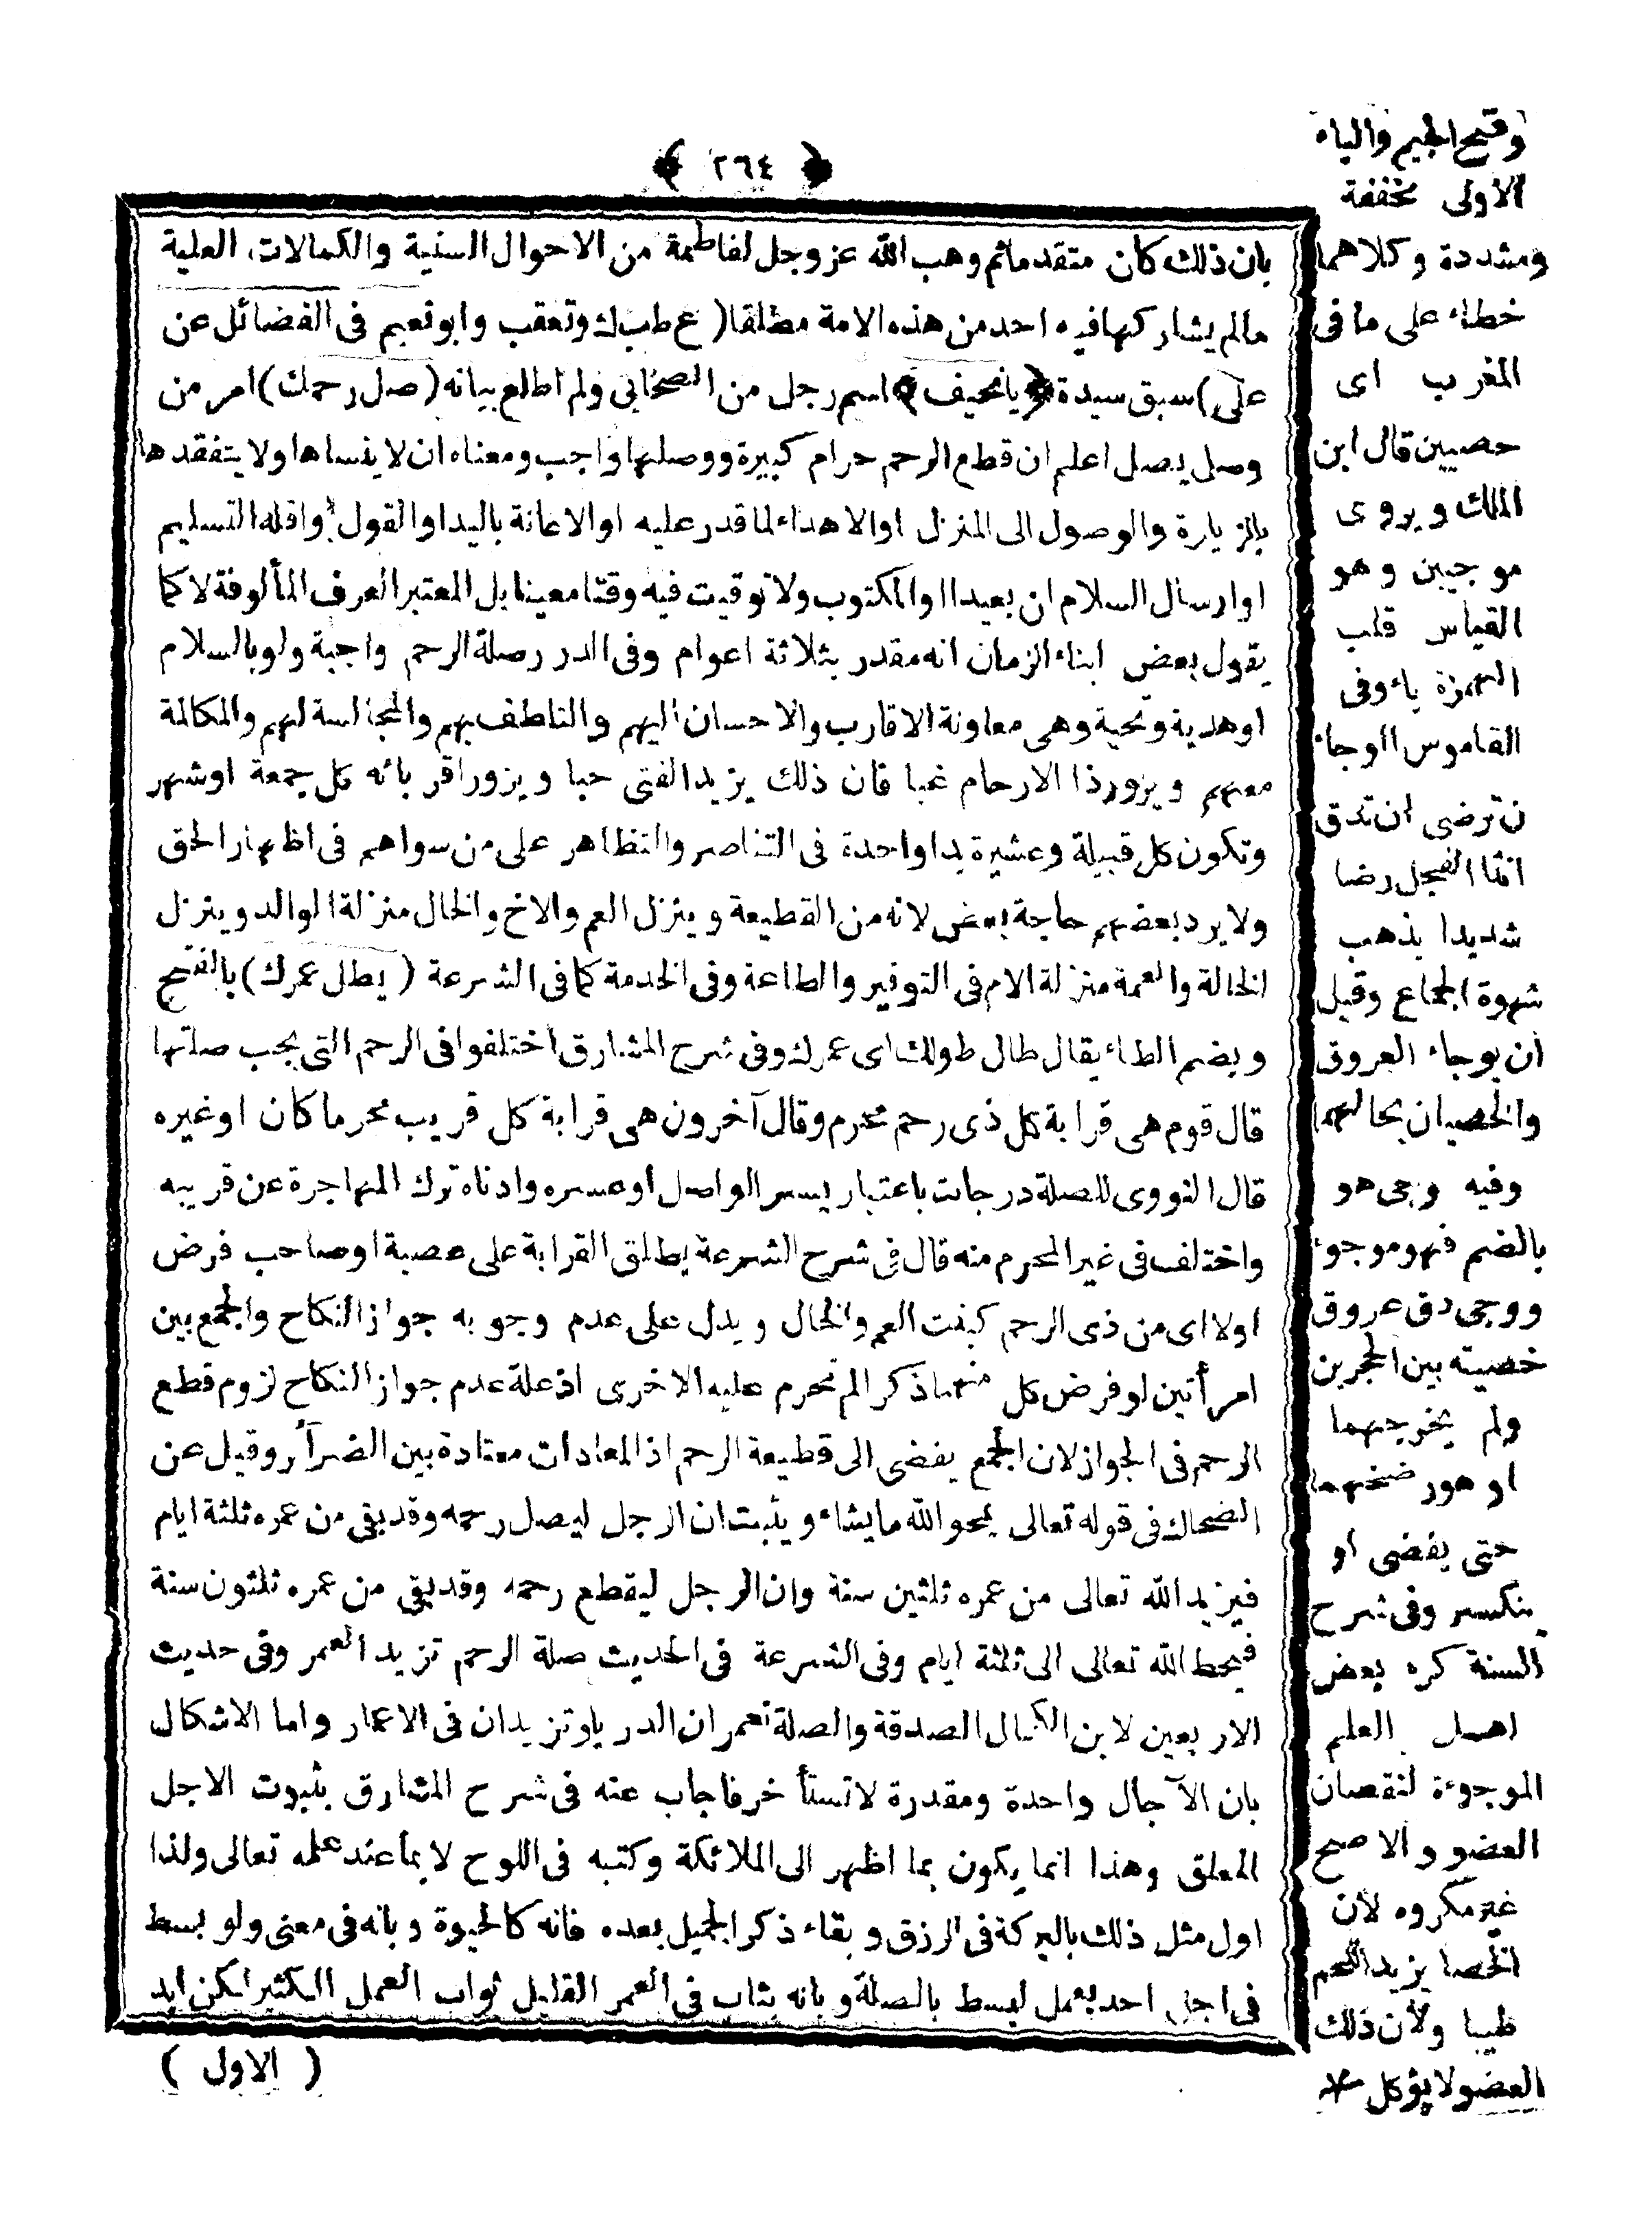 ﴿ ٢٦٤ ﴾
بان ذلك كان متقدما ثم وهب الله عز وجل لفاطمة من الاحوال السنية والكمالات العلية
مالم يشاركها فيه احد من هذه الامة مطلقا (ع طب ك وتعقب وابو نعيم فى الفضائل عن
على) سبق سيدة ﴿يا نحيف﴾ اسم رجل من الصحابى ولم اطلع بيانه (صل رحمك) امر من
وصل يصل اعلم ان قطع الرحم حرام كبيرة ووصلها واجب ومعناه ان لا ينساها ولا يتفقدها
بالزيارة والوصول الى المنزل او الاهداء لما قدر عليه او الاعانة باليد او القول واقله التسليم
او ارسال السلام ان بعيدا او المكتوب ولا توقيت فيه وقتا معينا بل المعتبر العرف المألوفة لا كما
يقول بعض ابناء الزمان انه مقدر بثلاثة اعوام وفى الدرر صلة الرحم واجبة ولو بالسلام
او هدية وتحية وهى معاونة الاقارب والاحسان اليهم والتلطف بهم والمجالسة لهم والمكالمة
معهم ويزور ذا الارحام غبا فان ذلك يزيد الفتى حبا ويزور اقربائه كل جمعة او شهر
وتكون كل قبيلة وعشيرة يدا واحدة فى التناصر والتظاهر على من سواهم فى اظهار الحق
ولا يرد بعضهم حاجة بعض لانه من القطيعة وينزل العم والاخ والخال منزلة الوالد وينزل
الخالة والعمة منزلة الام فى التوقير والطاعة وفى الخدمة كما فى الشرعة (يطل عمرك) بالفتح
وبضم الطاء يقال طال طولك اى عمرك وفى شرح المشارق اختلفوا فى الرحم التى يجب صلتها
قال قوم هى قرابة كل ذى رحم محرم وقال آخرون هى قرابة كل قريب محرما كان او غيره
قال النووى للصلة درجات باعتبار يسر الواصل او عسره وادناه ترك المهاجرة عن قريبه
واختلف فى غير المحرم منه قال فى شرح الشرعة يطلق القرابة على عصبة او صاحب فرض
اولا اى من ذى الرحم كبنت العم والخال ويدل على عدم وجوبه جواز النكاح والجمع بين
امرأتين لو فرض كل منهما ذكرا لم تحرم عليه الاخرى اذ علة عدم جواز النكاح لزوم قطع
الرحم فى الجواز لان الجمع يفضى الى قطيعة الرحم اذ المعادات معتادة بين الضرآئر وقيل عن
الضحاك فى قوله تعالى يمحو الله ما يشاء ويثبت ان الرجل ليصل رحمه وقد بقى من عمره ثلثة ايام
فيزيد الله تعالى من عمره ثلثين سنة وان الرجل ليقطع رحمه وقد بقى من عمره ثلثون سنة
فيحط الله تعالى الى ثلثة ايام وفى الشرعة فى الحديث صلة الرحم تزيد العمر وفى حديث
الاربعين لابن الكمال الصدقة والصلة تعمران الديار وتزيدان فى الاعمار واما الاشكال
بان الآجال واحدة ومقدرة لا تستأخر فاجاب عنه فى شرح المشارق بثبوت الاجل
المعلق وهذا انما يكون بما اظهر الى الملائكة وكتبه فى اللوح لا بما عند علمه تعالى ولذا
اول مثل ذلك بالبركة فى الرزق وبقاء ذكر الجميل بعده فانه كالحيوة وبانه فى معنى ولو بسط
فى اجل احد بعمل لبسط بالصلة وبانه يثاب فى العمر القليل ثواب العمل الكثير لكن ايد
( الاول )
وفتح الجيم والياء
الاولى مخففة
ومشددة وكلاهما
خطاء على ما فى
المغرب اى
حصيين قال ابن
الملك ويروى
موجيين وهو
القياس قلب
الهمزة ياء وفى
القاموس الوجاء
ان ترضى ان تدق
انثا الفحل رضا
شديدا يذهب
شهوة الجماع وقيل
ان يوجاء العروق
والخصيان بحالهما
وفيه وجى هو
بالضم فهو موجوء
ووجى دق عروق
خصيته بين الحجرين
ولم يخرجهما
او هو رضخهما
حتى يفضى او
ينكسر وفى شرح
السنة كره بعض
اهل العلم
الموجوءة لنقصان
العضو والاصح
غير مكروه لان
الخصا يزيد اللحم
طيبا ولان ذلك
العضو لا يؤكل ✳